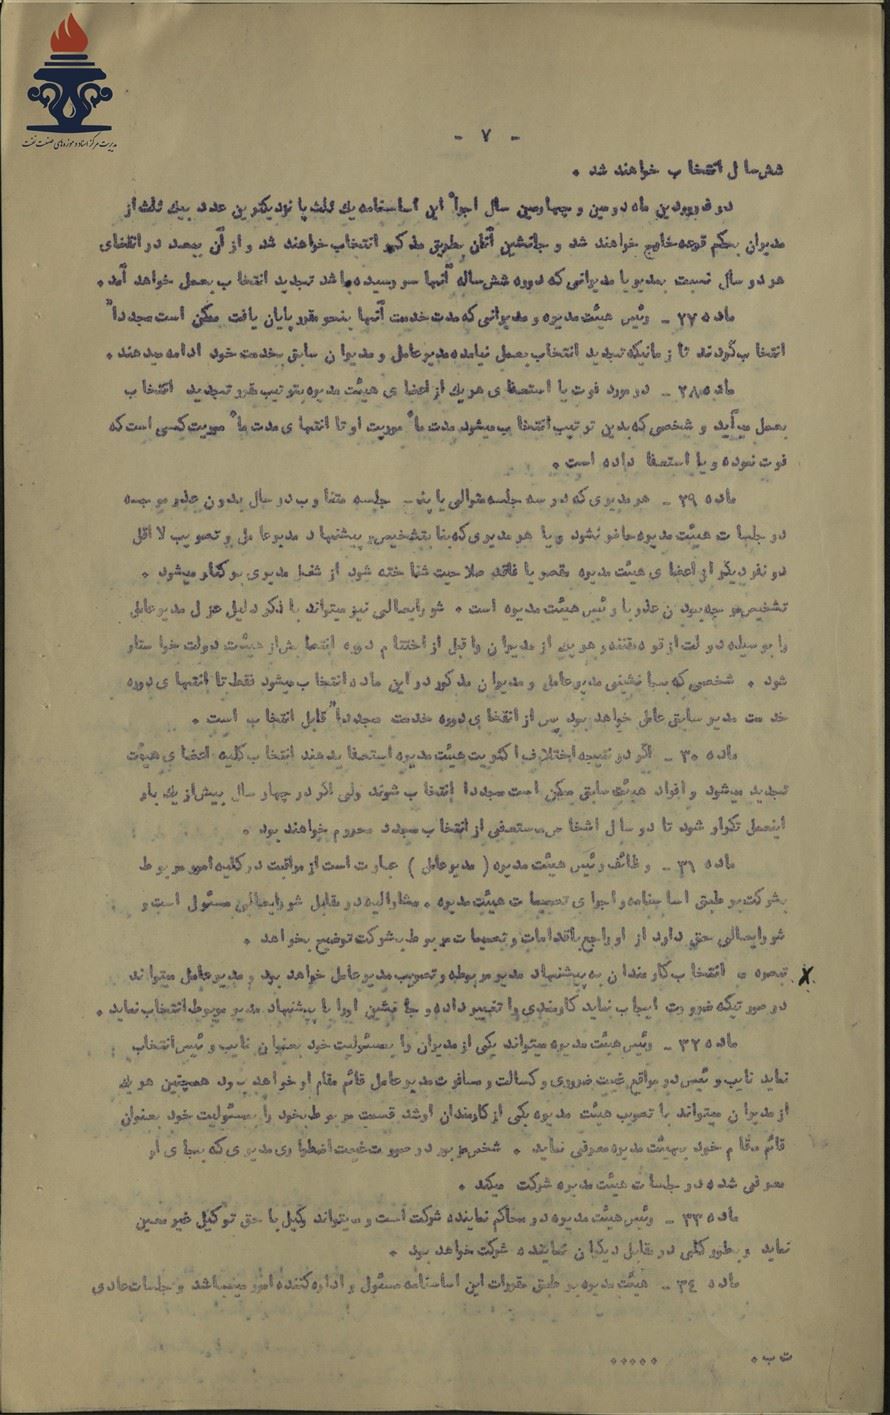 مدیریت مرکز اسناد و موزه‌های صنعت نفت
- ۷ -
شش سال انتخاب خواهند شد .
در فروردین ماه دومین و چهارمین سال اجراٴ این اساسنامه یك ثلث یا نزدیکترین عدد بیك ثلث از
مدیران بحکم قرعه خارج خواهند شد و جانشین آنان بطریق مذکور انتخاب خواهند شد و از آن ببعد در انقضای
هر دو سال نسبت بمدیر یا مدیرانی که دوره شش ساله آنها سر رسیده باشد تجدید انتخاب بعمل خواهد آمد .
ماده ۲۷ - رئیس هیئت مدیره و مدیرانی که مدت خدمت آنها بنحو مقرر پایان یافت ممکن است مجدداً
انتخاب گردند تا زمانیکه تجدید انتخاب بعمل نیامده مدیر عامل و مدیران سابق بخدمت خود ادامه میدهند .
ماده ۲۸ - در مورد فوت یا استعفای هر یك از اعضای هیئت مدیره بترتیب مقرر تجدید انتخاب
بعمل میآید و شخصی که بدین ترتیب انتخاب میشود مدت ماٴموریت او تا انتهای مدت ماٴموریت کسی است که
فوت نموده و یا استعفا داده است .
ماده ۲۹ - هر مدیری که در سه جلسه متوالی یا پنج جلسه متناوب در سال بدون عذر موجه
در جلسات هیئت مدیره حاضر نشود و یا هر مدیری که بنا بتشخیص و پیشنهاد مدیر عامل و تصویب لا اقل
دو نفر دیگر از اعضای هیئت مدیره مقصر یا فاقد صلاحیت شناخته شود از شغل مدیری بر کنار میشود .
تشخیص موجه بودن عذر با رئیس هیئت مدیره است . شورایعالی نیز میتواند با ذکر دلیل عزل مدیر عامل
را بوسیله دولت از قوه مقننه و هر یك از مدیران را قبل از اختتام دوره انتصابش از هیئت دولت خواستار
شود . شخصی که بجانشینی مدیر عامل و مدیران مذکور در این ماده انتخاب میشود فقط تا انتهای دوره
خدمت مدیر سابق عامل خواهد بود پس از انقضای دوره خدمت مجدداً قابل انتخاب است .
ماده ۳۰ - اگر در نتیجه اختلاف اکثریت هیئت مدیره استعفا بدهند انتخاب کلیه اعضای هیئت
تجدید میشود و افراد هیئت سابق ممکن است مجددا انتخاب شوند ولی اگر در چهار سال بیش از یك بار
اینعمل تکرار شود تا دو سال اشخاص مستعفی از انتخاب مجدد محروم خواهند بود .
ماده ۳۱ - وظائف رئیس هیئت مدیره ( مدیر عامل ) عبارت است از مراقبت در کلیه امور مربوط
بشرکت بر طبق اساسنامه و اجرای تصمیمات هیئت مدیره . مشارالیه در مقابل شورایعالی مسئول است و
شورایعالی حق دارد از او راجع باقدامات و تصمیمات مربوط بشرکت توضیح بخواهد .
تبصره - انتخاب کارمندان به پیشنهاد مدیر مربوطه و تصویب مدیر عامل خواهد بود و مدیر عامل میتواند
در صورتیکه ضرورت ایجاب نماید کارمندی را تغییر داده و جانشین او را با پیشنهاد مدیر مربوطه انتخاب نماید .
ماده ۳۲ - رئیس هیئت مدیره میتواند یکی از مدیران را بمسئولیت خود بعنوان نایب رئیس انتخاب
نماید نایب رئیس در مواقع غیبت ضروری و کسالت و مسافرت مدیر عامل قائم مقام او خواهد بود همچنین هر یك
از مدیران میتواند با تصویب هیئت مدیره یکی از کارمندان ارشد قسمت مربوط بخود را بمسئولیت خود بعنوان
قائم مقام خود بهیئت مدیره معرفی نماید . شخص مزبور در صورت غیبت اضطراری مدیری که بجای او
معرفی شده در جلسات هیئت مدیره شرکت میکند .
ماده ۳۳ - رئیس هیئت مدیره در محاکم نماینده شرکت است و میتواند وکیل با حق توکیل غیر معین
نماید و بطور کلی در مقابل دیگران نماینده شرکت خواهد بود .
ماده ۳۴ - هیئت مدیره بر طبق مقررات این اساسنامه مسئول و اداره کننده امور میباشد و جلسات عادی
ت ب . .....